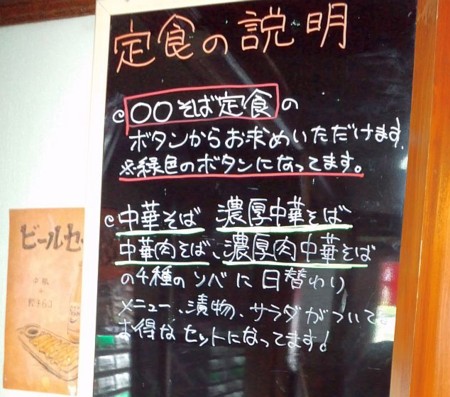 定食の説明
◎〇〇そば定食の
ボタンからお求めいただけます。
※緑色のボタンになってます。
◎中華そば 濃厚中華そば
中華肉そば、濃厚肉中華そば
の4種のソバに日替わり
メニュー、漬物、サラダがついて
お得なセットになってます!
ビールセ